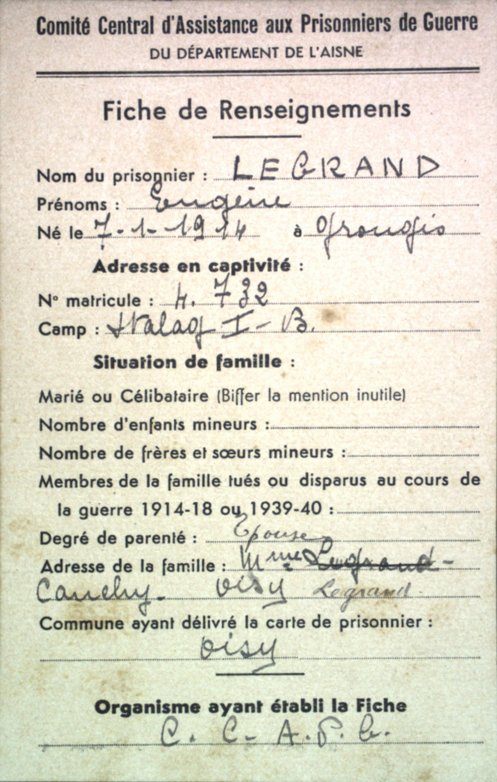 Comité Central d'Assistance aux Prisonniers de Guerre
DU DÉPARTEMENT DE L'AISNE
Fiche de Renseignements
Nom du prisonnier : LEGRAND
Prénoms : Eugène
Né le 7-1-1914 à Grougis
Adresse en captivité :
N° matricule : 4.732
Camp : Stalag I-B.
Situation de famille :
Marié ou Célibataire (Biffer la mention inutile)
Nombre d'enfants mineurs :
Nombre de frères et sœurs mineurs :
Membres de la famille tués ou disparus au cours de
la guerre 1914-18 ou 1939-40 :
Degré de parenté : Epouse
Adresse de la famille : Mme Legrand-
Cauchy- Oisy Legrand
Commune ayant délivré la carte de prisonnier :
Oisy
Organisme ayant établi la Fiche
C. C- A. P. G.